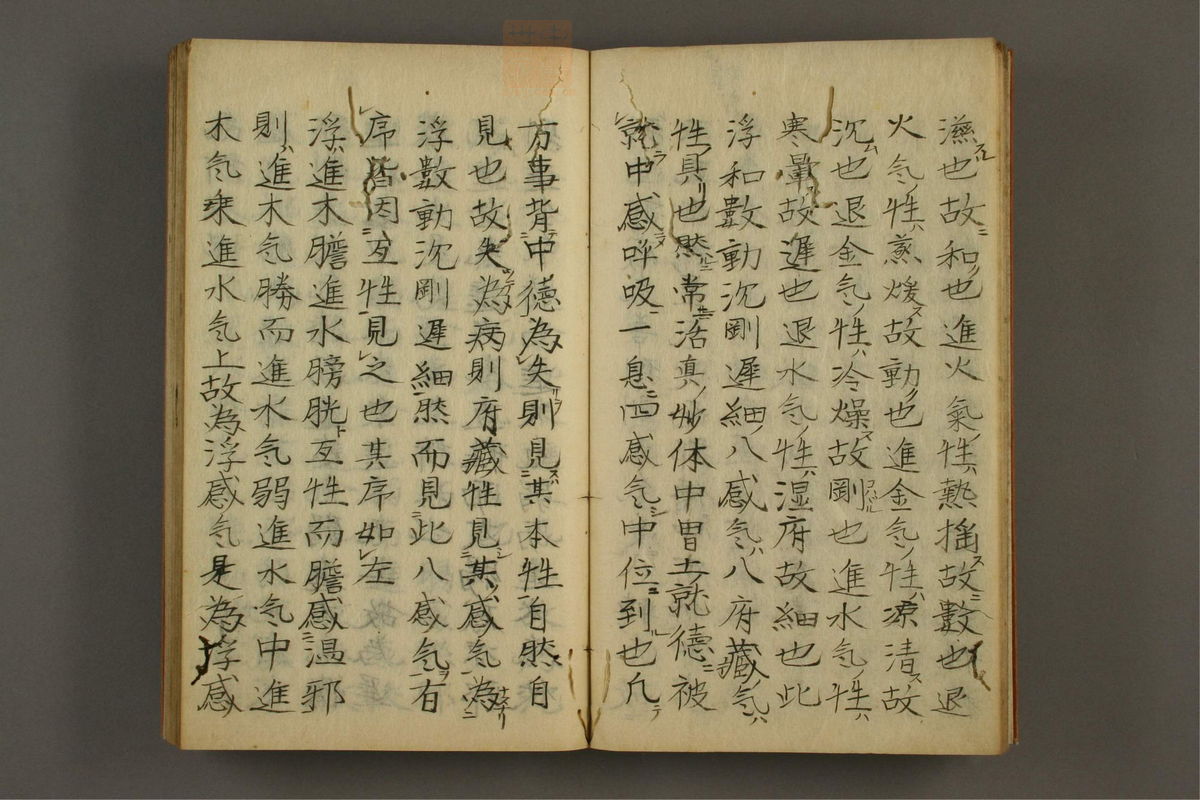 濕也故和也進火氣性熱搖故數也退
火气性蒸煖故動也進金气性凉清故
沉也退金气性冷燥故剛也進水气性
寒暈故遲也退水气性湿府故細也此
浮和數動沉剛遲細八感气八府藏气
性具也然常活真妙体中胃土就德被
就中感呼吸一息四感气中位到也凡
万事背中德為失則見其本性自然自
見也故失為病則府藏性見其感气為
浮數動沉剛遲細然而見此八感气有
序皆因互性見之也其序如左
浮進木膽進水膀胱互性而膽感温邪
則進木气勝而進水气弱進水气中進
木气乗進水气上故為浮感气是為浮感